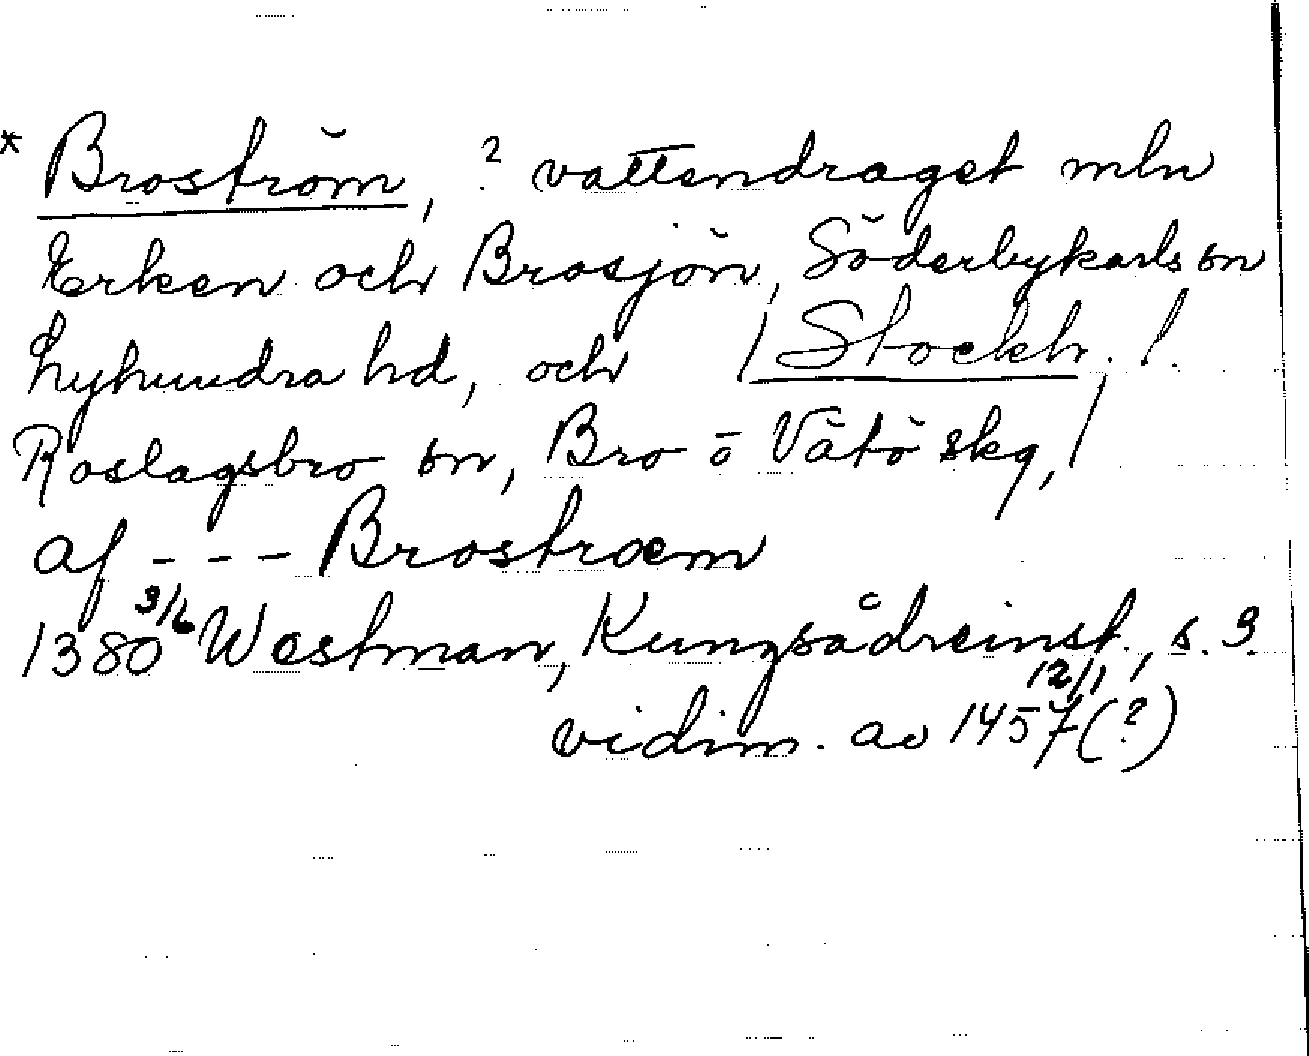 * Broström, ? vattendraget mln
Erken och Brosjön, Söderbykarls sn
Lyhundra hd, och / Stockh. /.
Roslagsbro sn, Bro o Vätö skg, /
af - - - Brostroem
1380 3/6 Westman, Kungsådreinst., s. 9.
vidim. av 1457 12/1 (?)